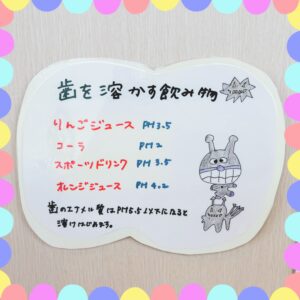 歯を溶かす飲み物
りんごジュース PH3.5
コーラ PH2
スポーツドリンク PH3.5
オレンジジュース PH4.2
歯のエナメル質はPH5.5以下になると
溶けはじめます。